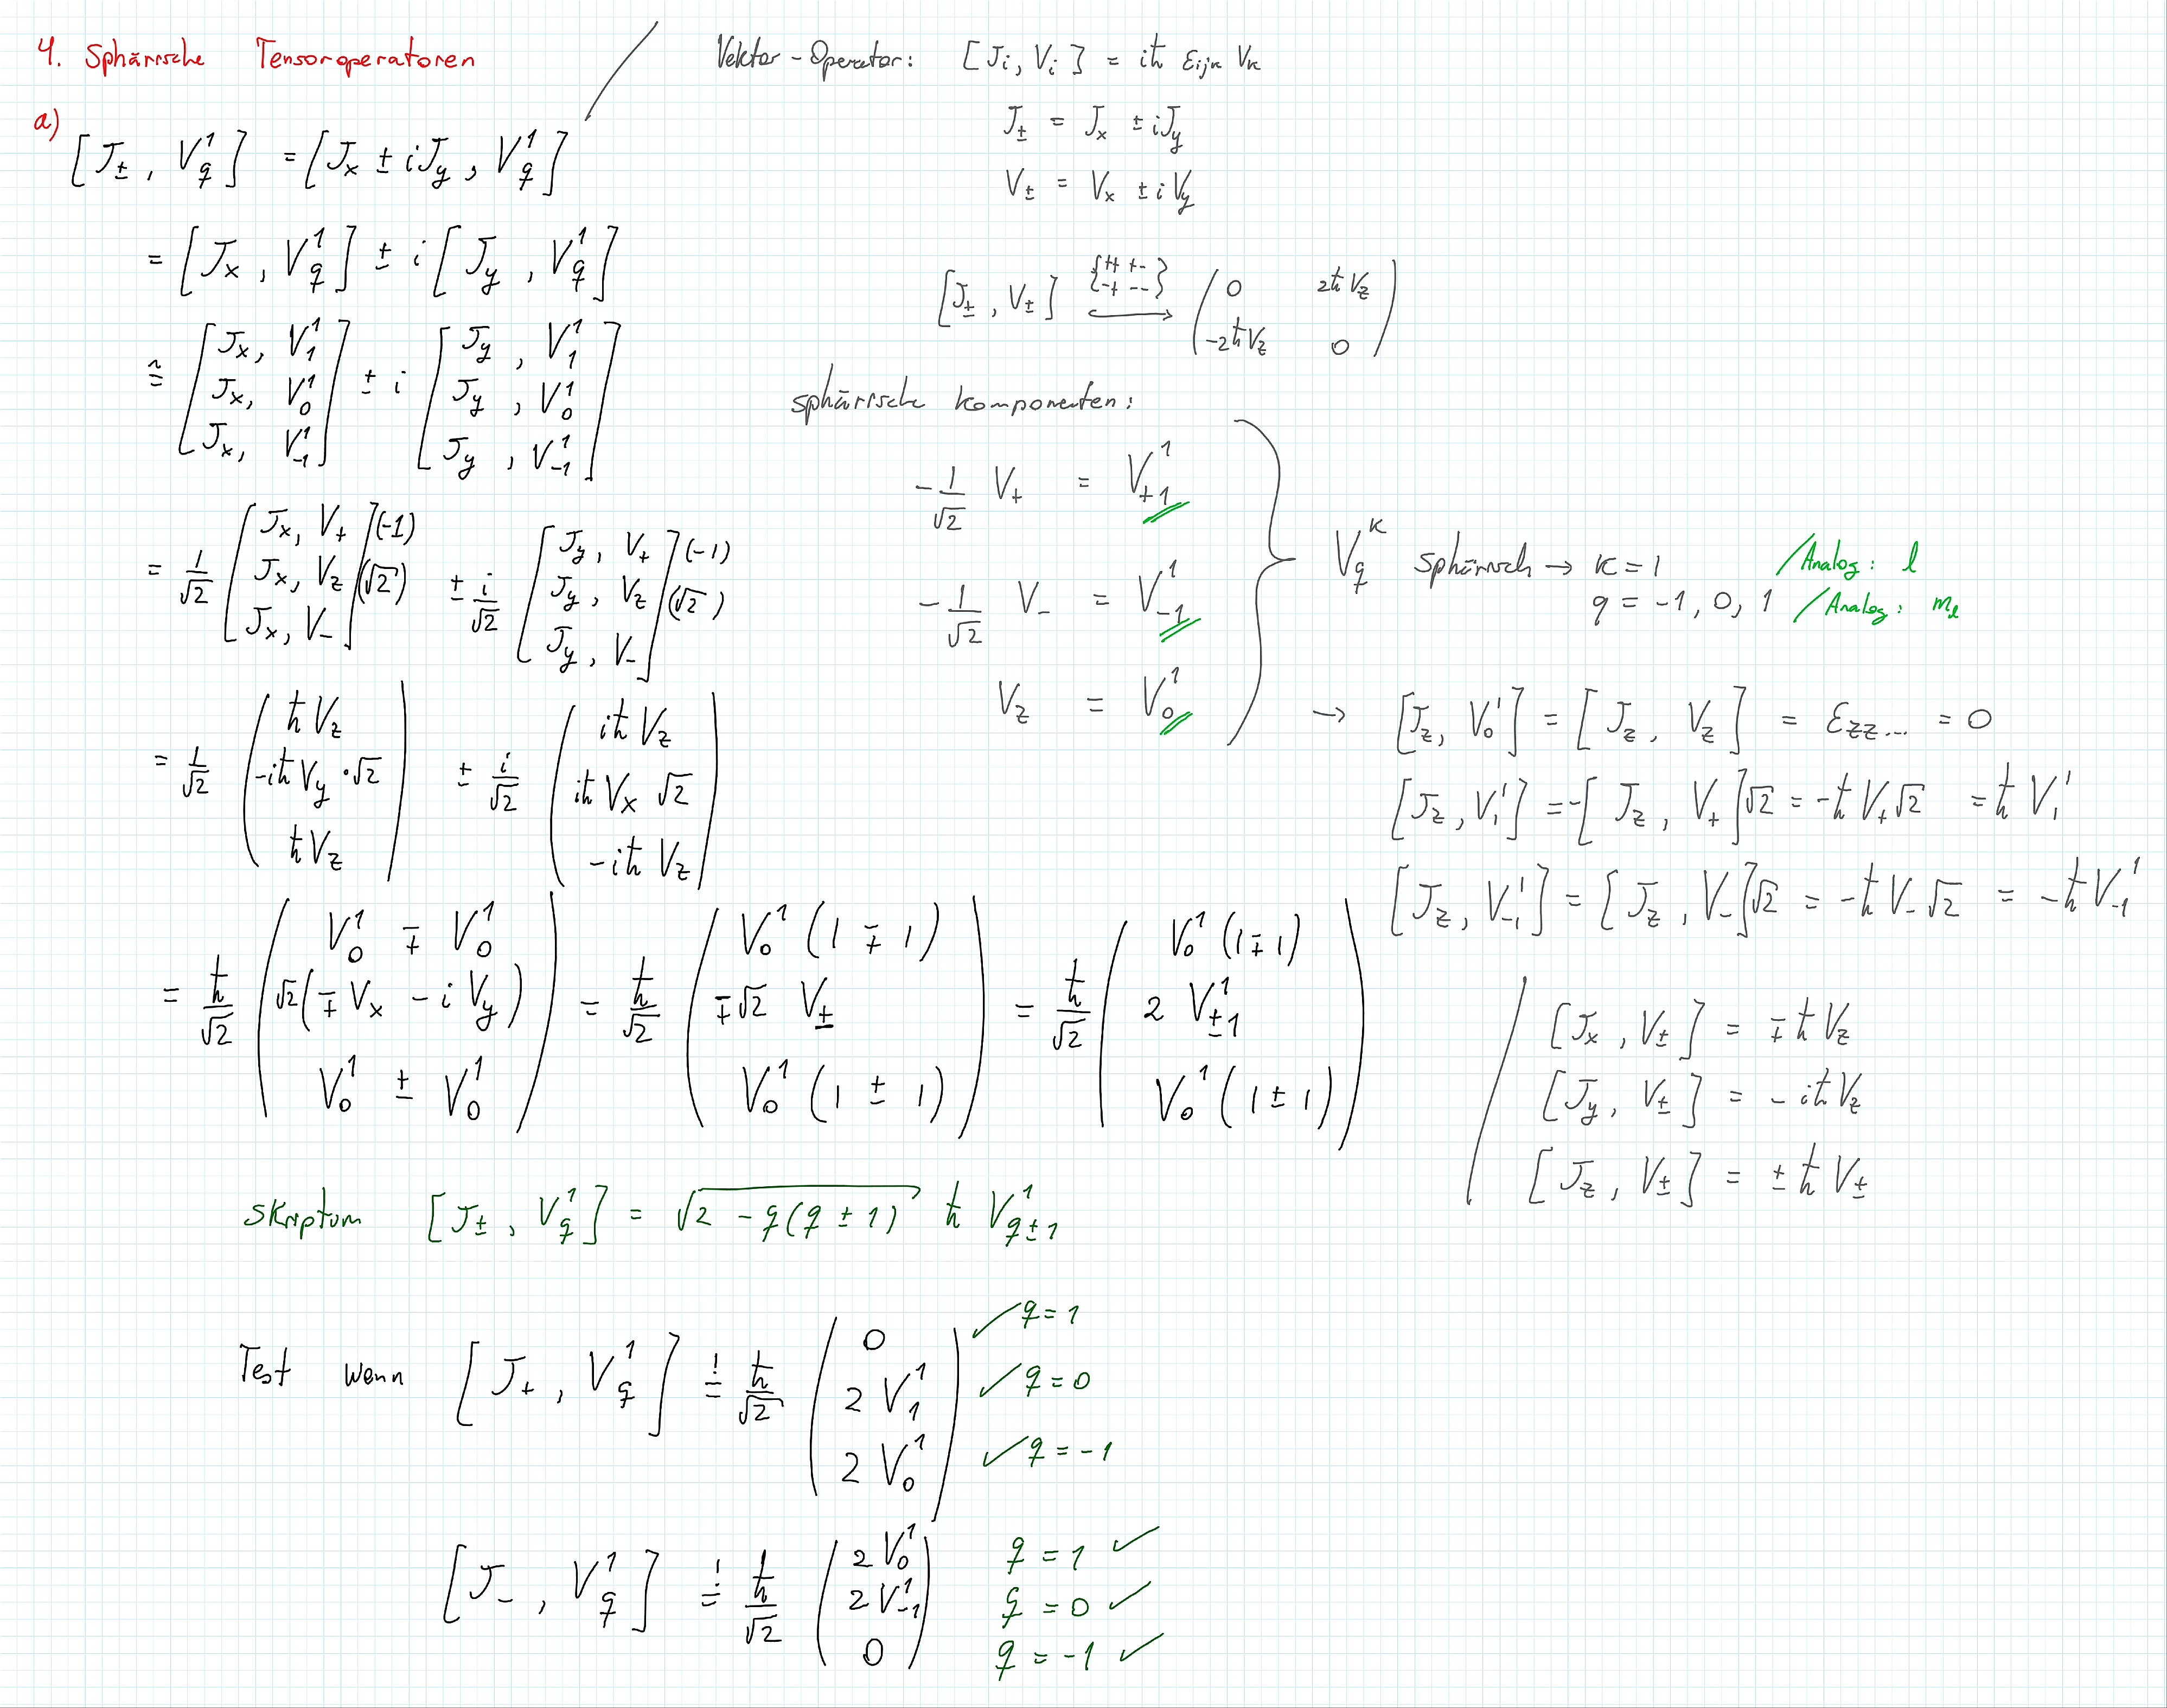 4. Sphärische Tensoroperatoren
a)
[J±, V_q^1] = [J_x ± iJ_y, V_q^1]
= [J_x, V_q^1] ± i [J_y, V_q^1]
≙ [J_x, V_1^1; J_x, V_0^1; J_x, V_-1^1] ± i [J_y, V_1^1; J_y, V_0^1; J_y, V_-1^1]
= 1/√2 [J_x, V_+; J_x, V_z; J_x, V_-] (-1) (√2) ± i/√2 [J_y, V_+; J_y, V_z; J_y, V_-] (-1) (√2)
= 1/√2 (ħV_z; -iħV_y·√2; ħV_z) ± i/√2 (iħV_z; iħV_x √2; -iħV_z)
= ħ/√2 (V_0^1 ∓ V_0^1; √2(∓V_x - iV_y); V_0^1 ± V_0^1) = ħ/√2 (V_0^1 (1 ∓ 1); ∓√2 V_±; V_0^1 (1 ± 1)) = ħ/√2 (V_0^1 (1∓1); 2 V_±1^1; V_0^1 (1 ± 1))
Skriptum [J±, V_q^1] = √(2 - q(q ± 1)) ħ V_q±1^1
Test wenn [J_+, V_q^1] =! ħ/√2 (0; 2 V_1^1; 2 V_0^1)
✓ q = 1
✓ q = 0
✓ q = -1
[J_-, V_q^1] =! ħ/√2 (2 V_0^1; 2 V_-1^1; 0)
q = 1 ✓
q = 0 ✓
q = -1 ✓
Vektor-Operator: [J_i, V_i] = iħ ε_ijk V_k
J_± = J_x ± iJ_y
V_± = V_x ± iV_y
[J_±, V_±] {++ +- -+ --} → (0 2ħV_z; -2ħV_z 0)
sphärische Komponenten:
-1/√2 V_+ = V_+1^1
-1/√2 V_- = V_-1^1
V_z = V_0^1
V_q^K sphärisch → K = 1 /Analog: l
q = -1, 0, 1 /Analog: m_l
→ [J_z, V_0^1] = [J_z, V_z] = ε_zz... = 0
[J_z, V_1^1] = -[J_z, V_+]√2 = -ħV_+√2 = ħV_1^1
[J_z, V_-1^1] = [J_z, V_-]√2 = -ħV_-√2 = -ħV_-1^1
[J_x, V_±] = ∓ħV_z
[J_y, V_±] = -iħV_z
[J_z, V_±] = ±ħV_±